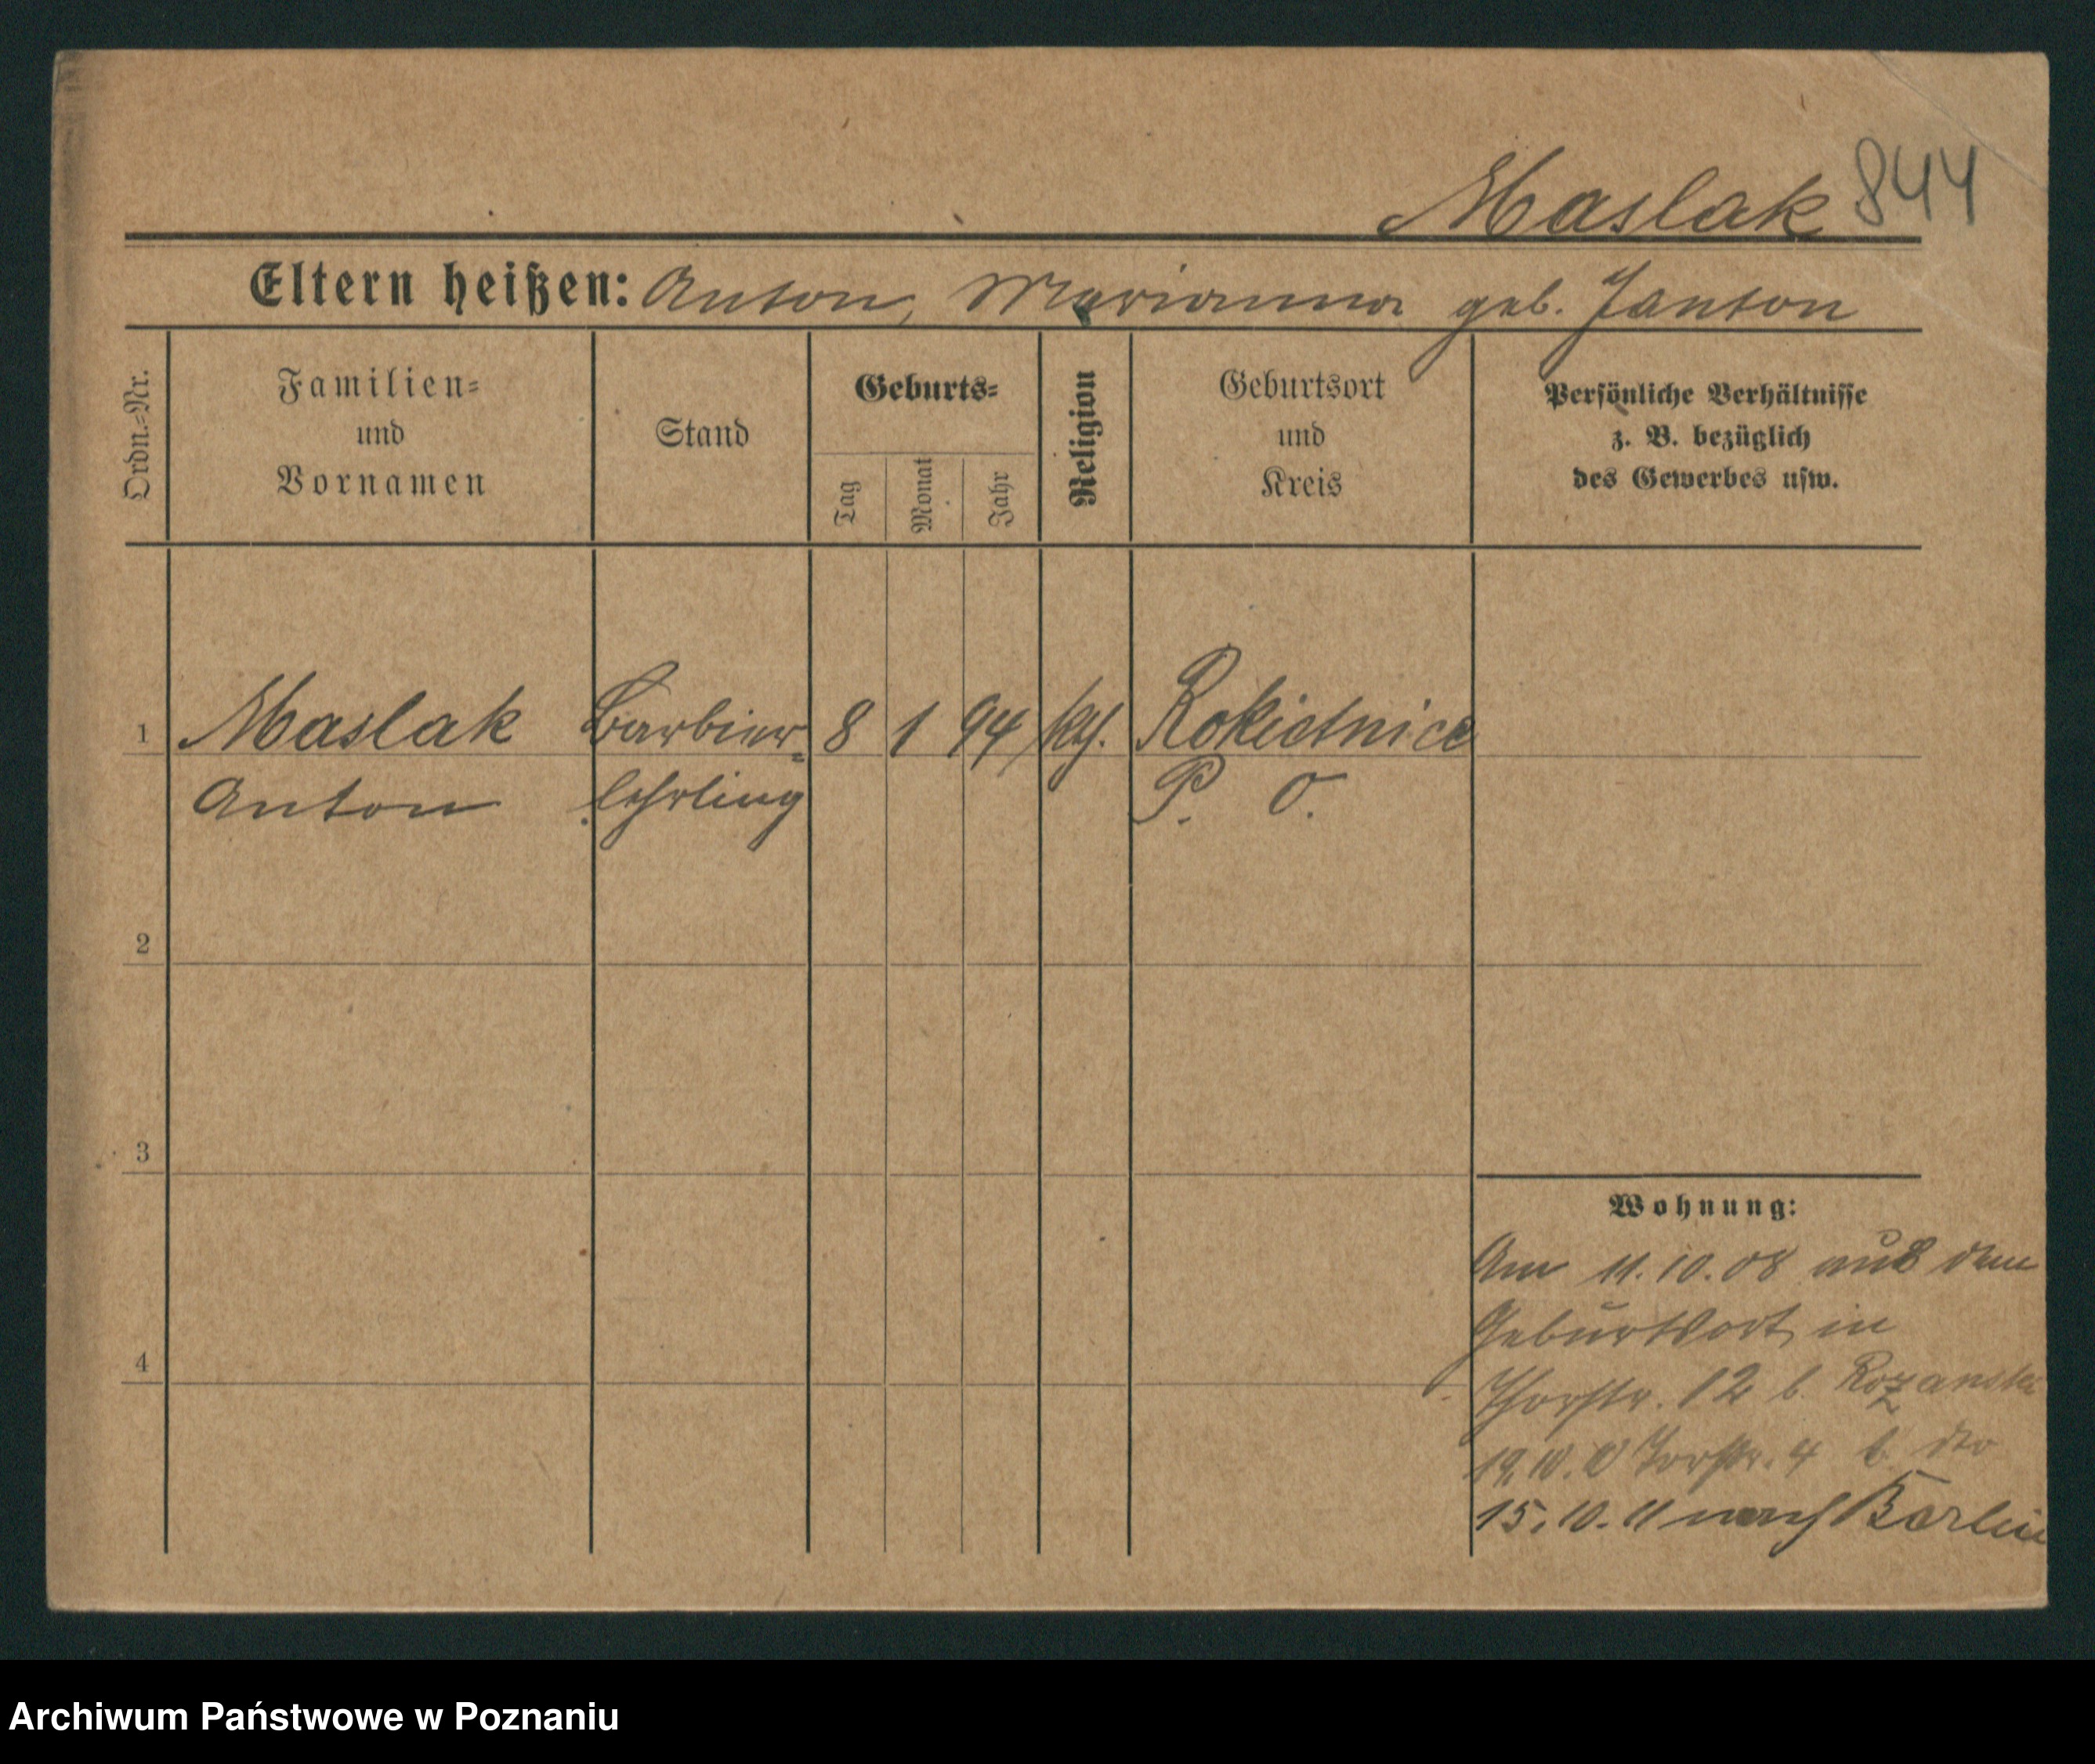 Maslak 844
Eltern heißen: Anton, Marianna geb. Janton
Ordn.=Nr.
Familien=
und
Vornamen
Stand
Geburts=
Tag
Monat
Jahr
Religion
Geburtsort
und
Kreis
Persönliche Verhältnisse
z. B. bezüglich
des Gewerbes usw.
1 Maslak Barbier= 8 1 94 kth. Rokietnice
Anton lehrling P. O.
2
3
4
Wohnung:
Am 11.10.08 aus dem
Geburtsort in
Thorstr. 12 b. Rozanski
Torstr. 4 b. dto
15.10.11 nach Berlin
Archiwum Państwowe w Poznaniu